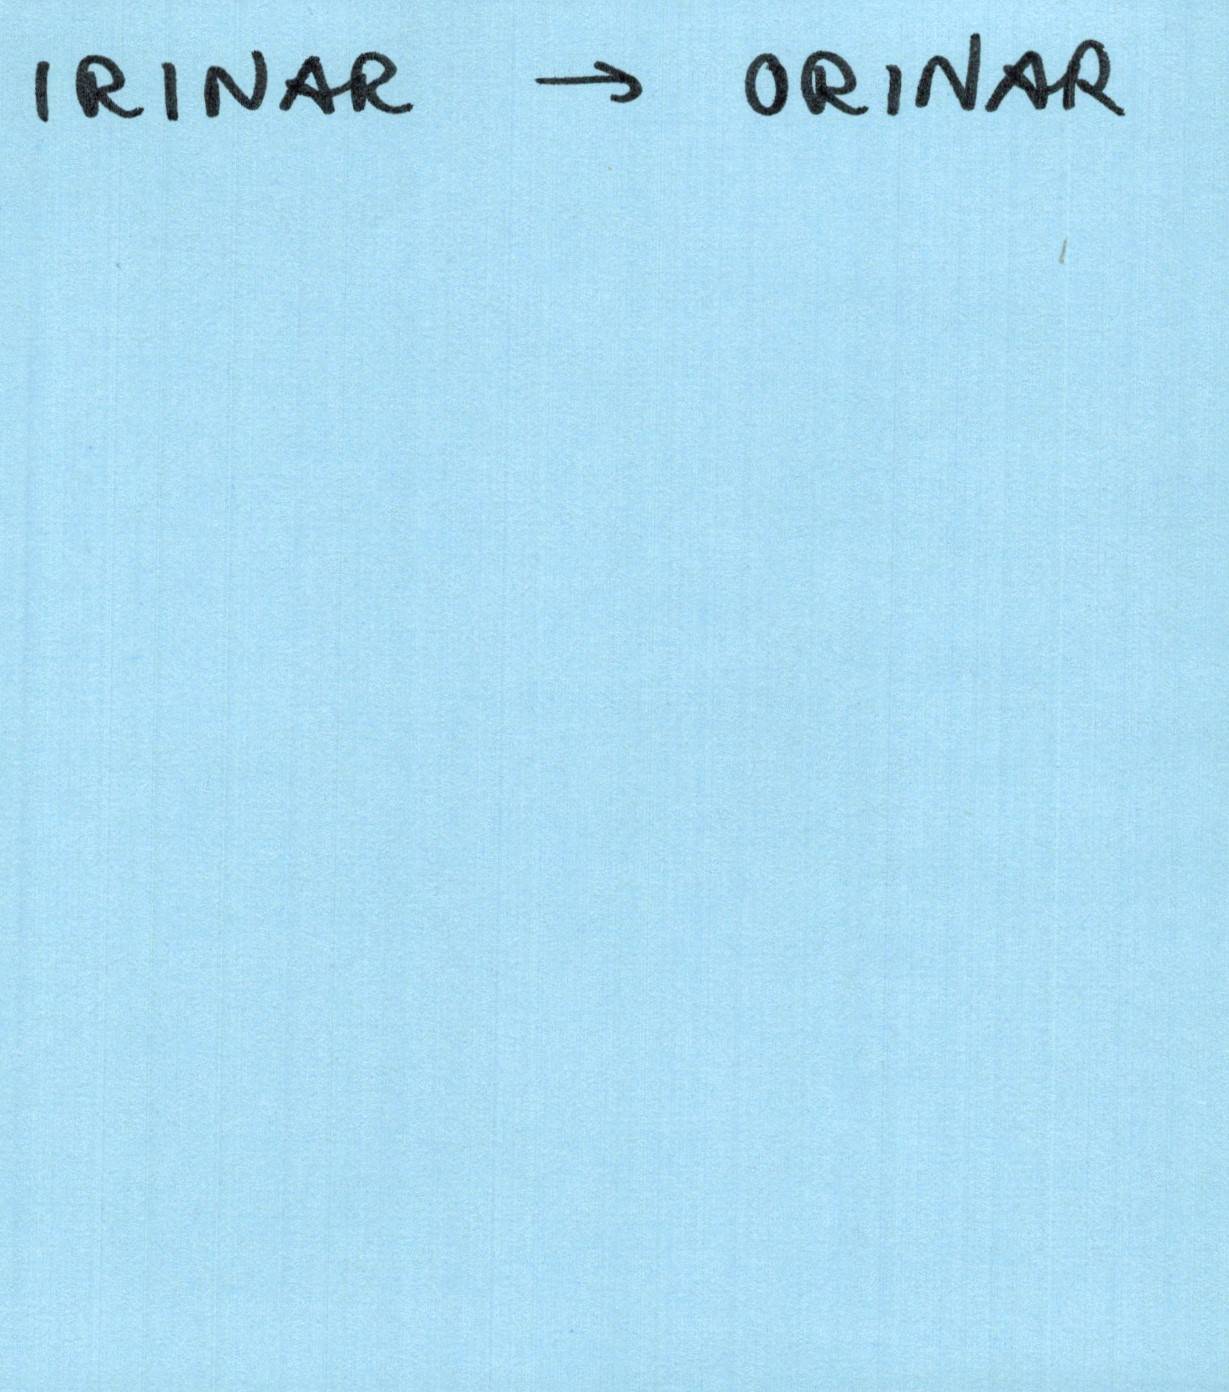 IRINAR → ORINAR